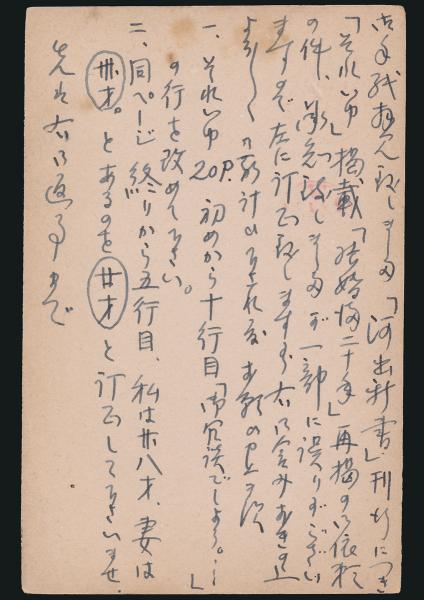 お手紙拝見致しました「河出新書」刊行につき
「それいゆ」掲載「結婚後二十年」再掲の御依頼
の件、承知致しましたが一部に誤りがござい
ますので左に訂正致しますから右に含みおきの上
よろしく御取計ひ下され度お願ひ申上げ
一、それいゆ 20P. 初めから十行目「御冗談でしょう。…」
の行を改めて下さい。
二、同ページ 終りから五行目、私は廿八才、妻は
卅才。とあるのを 廿才 と訂正して下さいませ.
先は右御返事まで